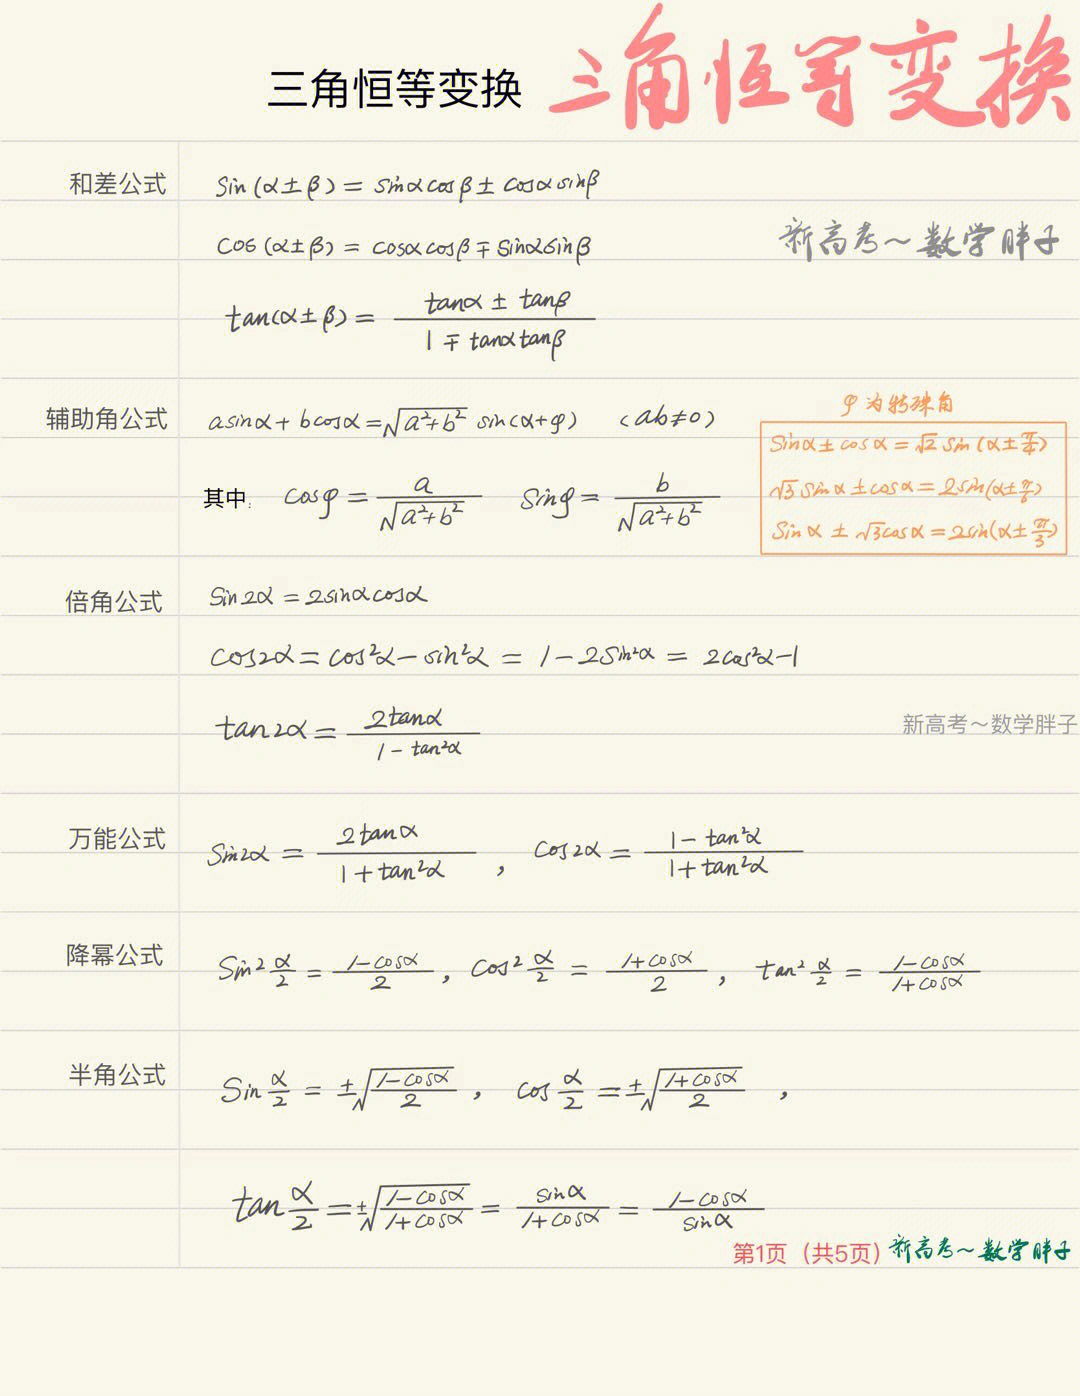 三角恒等变换 三角恒等变换
和差公式 sin(α±β)=sinαcosβ±cosαsinβ
cos(α±β)=cosαcosβ∓sinαsinβ
新高考~数学胖子
tan(α±β)=(tanα±tanβ)/(1∓tanαtanβ)
辅助角公式 asinα+bcosα=√(a²+b²) sin(α+φ) (ab≠0)
其中: cosφ=a/√(a²+b²) sinφ=b/√(a²+b²)
φ为特殊角
sinα±cosα=√2sin(α±π/4)
√3sinα±cosα=2sin(α±π/6)
sinα±√3cosα=2sin(α±π/3)
倍角公式 sin2α=2sinαcosα
cos2α=cos²α-sin²α=1-2sin²α=2cos²α-1
tan2α=2tanα/(1-tan²α)
新高考~数学胖子
万能公式 sin2α=2tanα/(1+tan²α), cos2α=(1-tan²α)/(1+tan²α)
降幂公式 sin²α/2=(1-cosα)/2, cos²α/2=(1+cosα)/2, tan²α/2=(1-cosα)/(1+cosα)
半角公式 sinα/2=±√((1-cosα)/2), cosα/2=±√((1+cosα)/2),
tanα/2=±√((1-cosα)/(1+cosα))=sinα/(1+cosα)=(1-cosα)/sinα
第1页(共5页) 新高考~数学胖子